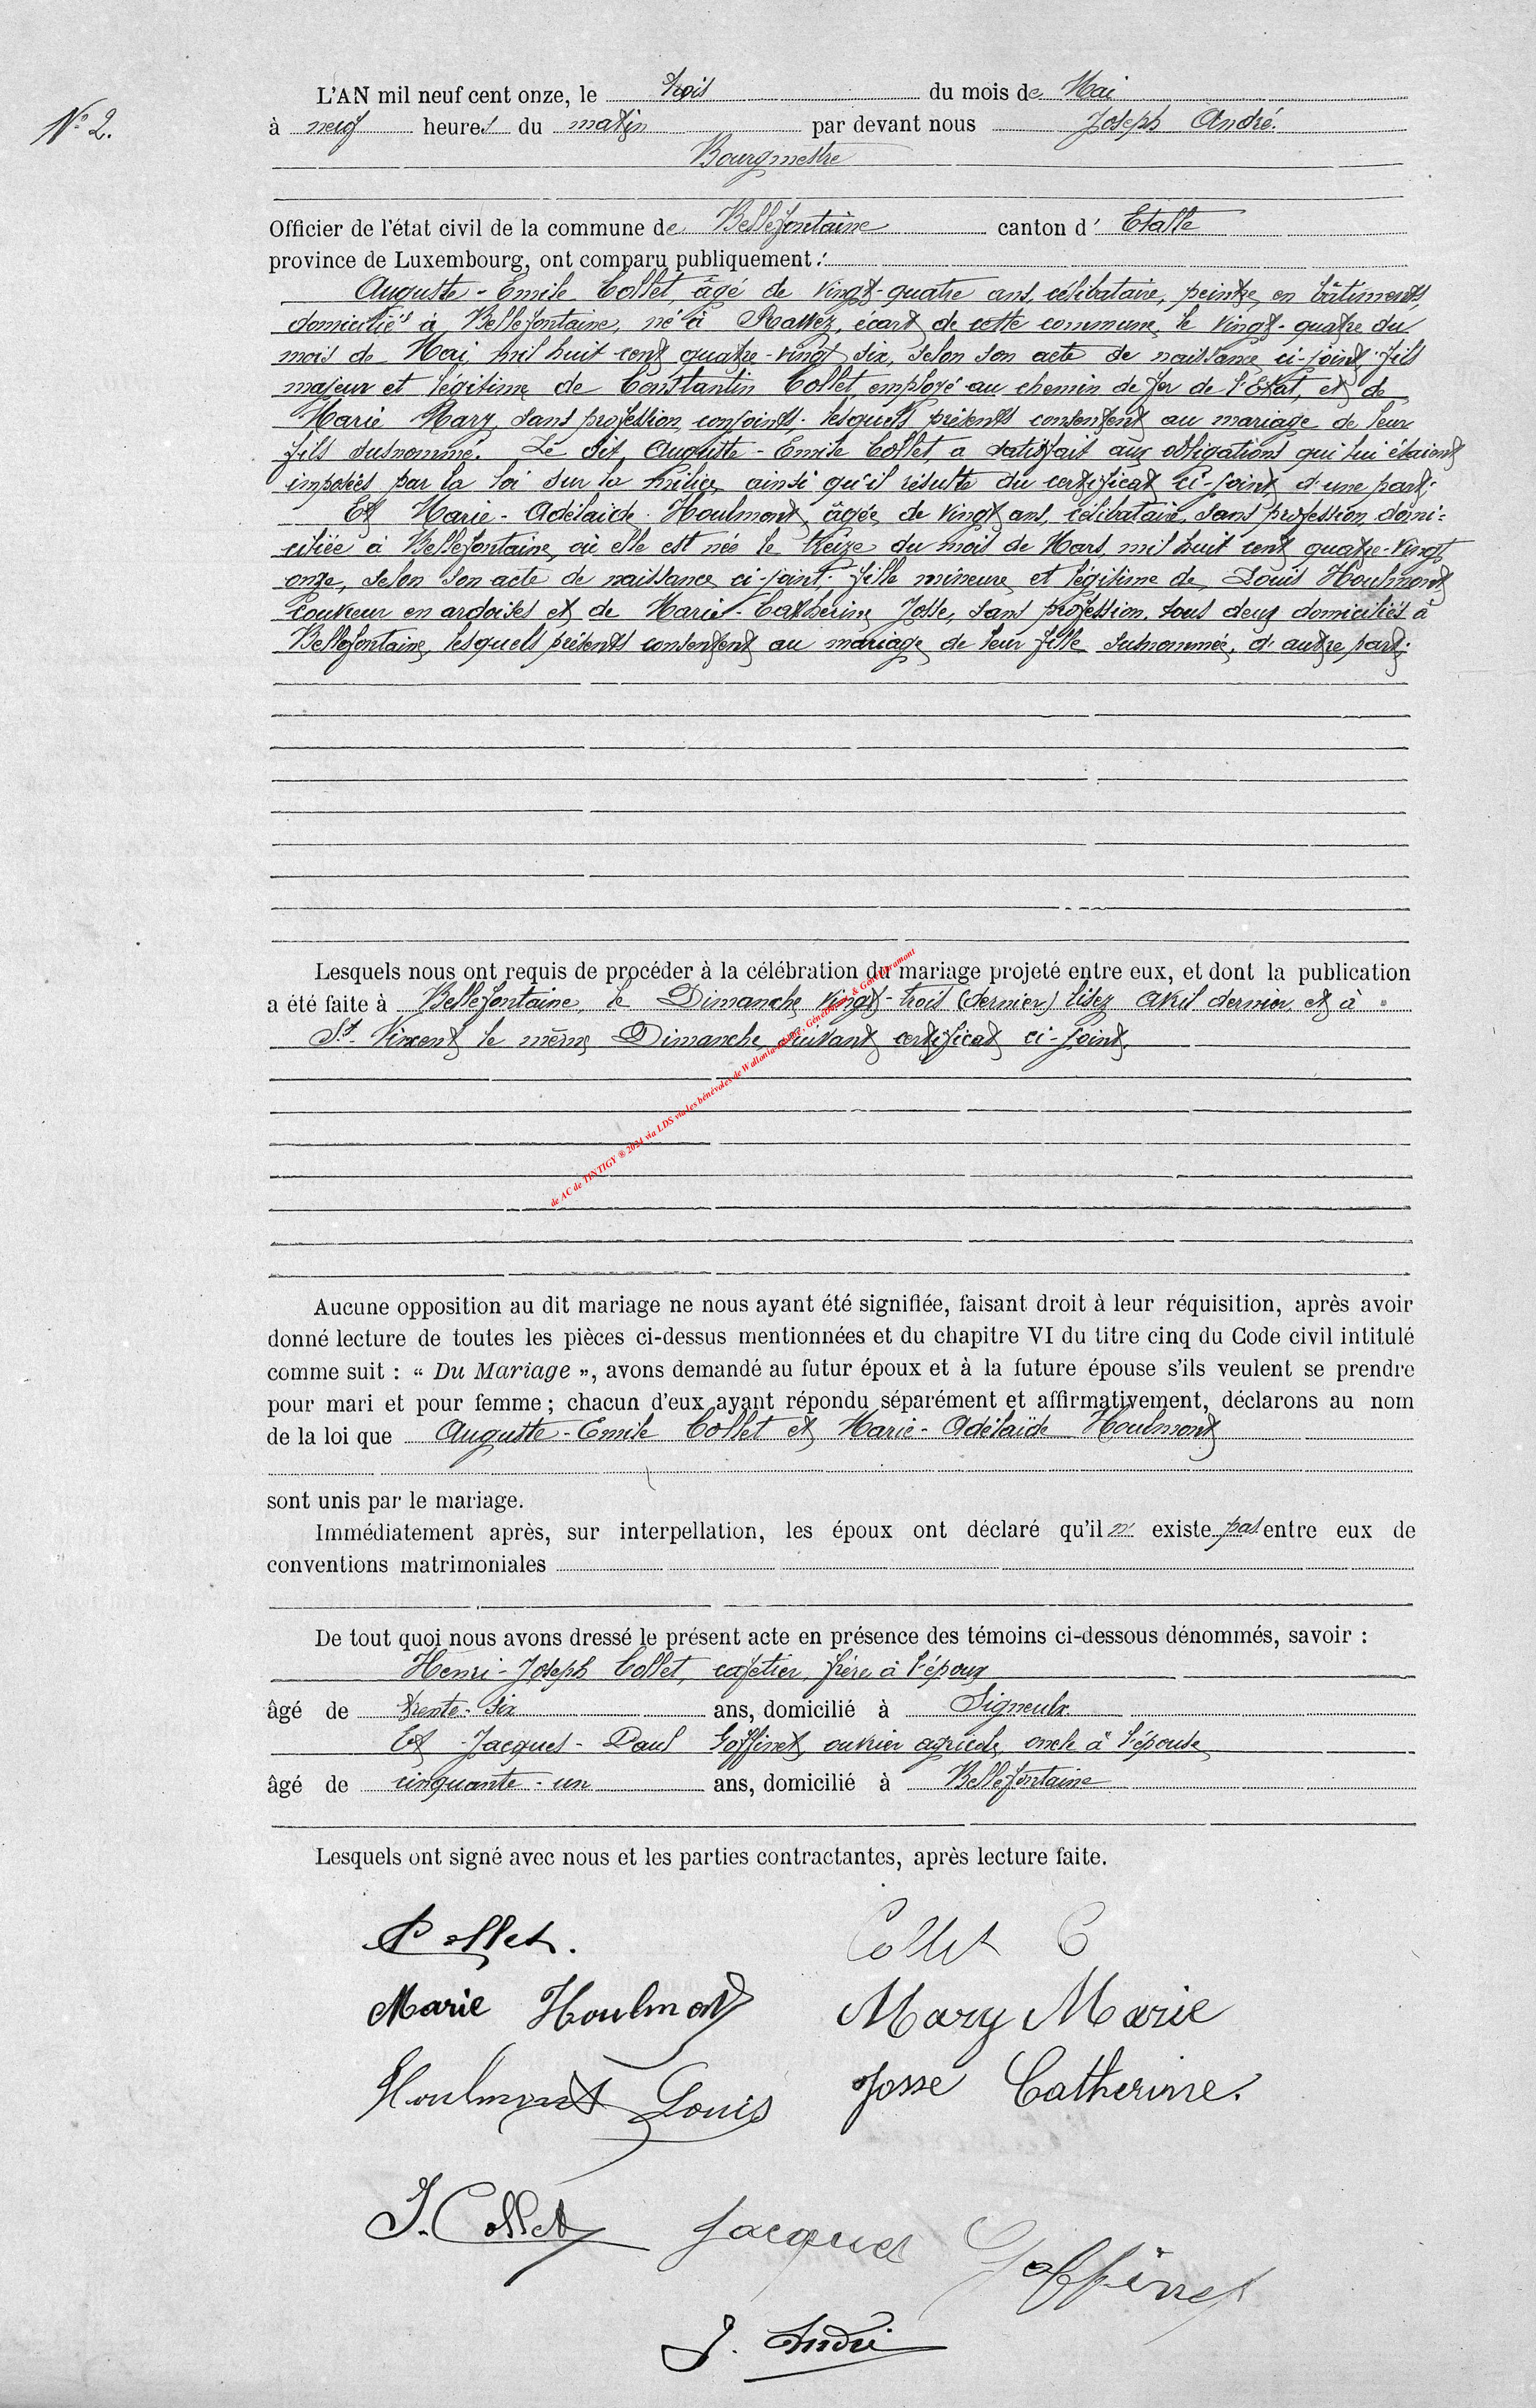 N° 2.
L'AN mil neuf cent onze, le trois du mois de Mai
à neuf heures du matin par devant nous Joseph André.
Bourgmestre
Officier de l'état civil de la commune de Bellefontaine canton d' Etalle
province de Luxembourg, ont comparu publiquement :
Auguste - Emile Collet, âgé de vingt-quatre ans, célibataire, peintre en bâtiments,
domicilié à Bellefontaine, né à écart de cette commune, le vingt-quatre du
mois de Mai, mil huit cent quatre-vingt six, selon son acte de naissance ci-joint; fils
majeur et légitime de Constantin Collet, employé au chemin de fer de l'Etat, et de
Marie Mary, sans profession, conjoints; lesquels présents consentent au mariage de leur
fils susnommé. Le dit Auguste - Emile Collet, a satisfait aux obligations qui lui étaient
imposées par la loi sur la milice, ainsi qu'il résulte du certificat ci-joint, d'une part;
Et Marie - Adélaïde Houlmont, âgée de vingt ans, célibataire, sans profession, domi-
ciliée à Bellefontaine, où elle est née le treize du mois de Mars, mil huit cent quatre-vingt
onze, selon son acte de naissance ci-joint; fille mineure et légitime de Louis Houlmont,
couvreur en ardoises et de Marie-Catherine Josse, sans profession, tous deux domiciliés à
Bellefontaine, lesquels présents consentent au mariage de leur fille susnommée, d'autre part;
Lesquels nous ont requis de procéder à la célébration du mariage projeté entre eux, et dont la publication
a été faite à Bellefontaine, le Dimanche vingt-trois (dernier) lisez avril dernier, et à
St. Vincent le même Dimanche suivant certificat ci-joint.
de AC de TINTIGY ® 2024 via LDS via les bénévoles de Wallonia-
Aucune opposition au dit mariage ne nous ayant été signifiée, faisant droit à leur réquisition, après avoir
donné lecture de toutes les pièces ci-dessus mentionnées et du chapitre VI du titre cinq du Code civil intitulé
comme suit : « Du Mariage », avons demandé au futur époux et à la future épouse s'ils veulent se prendre
pour mari et pour femme ; chacun d'eux ayant répondu séparément et affirmativement, déclarons au nom
de la loi que Auguste - Emile Collet et Marie - Adélaïde Houlmont
sont unis par le mariage.
Immédiatement après, sur interpellation, les époux ont déclaré qu'il n' existe pas entre eux de
conventions matrimoniales
De tout quoi nous avons dressé le présent acte en présence des témoins ci-dessous dénommés, savoir :
Henri - Joseph Collet, cafetier, frère à l'époux
âgé de trente-six ans, domicilié à Signeulx
Et Jacques - Paul Goffinet, ouvrier agricole, oncle à l'épouse
âgé de cinquante-un ans, domicilié à Bellefontaine
Lesquels ont signé avec nous et les parties contractantes, après lecture faite.
Collet. Collet C
Marie Houlmont Mary Marie
Houlmont Louis Josse Catherine.
J. Collet Jacques Goffinet
J. André